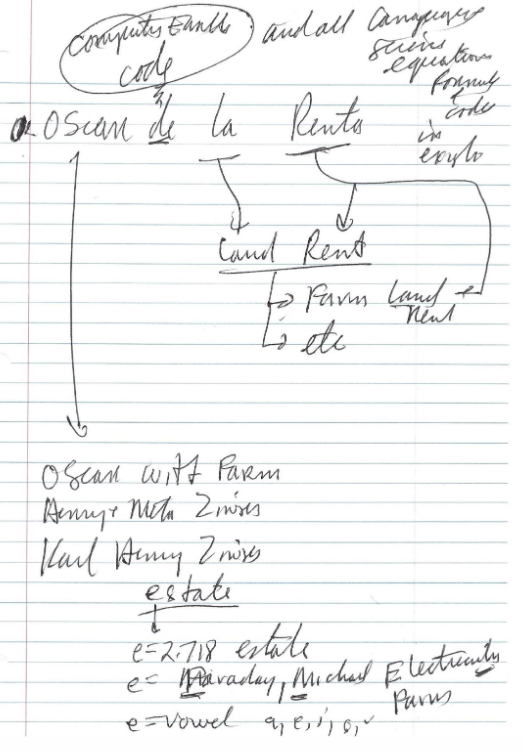 Computer Earth code and all Languages
equations
formula
codes
in
Oscar de la Renta
Land Rent
Farm Land Rent
etc
Oscar Witt Farm
Henry + Meta
Karl Henry
estate
e=2.718 estate
e= Faraday, Michael Electricity
Farms
e=vowel a, e, i, o,